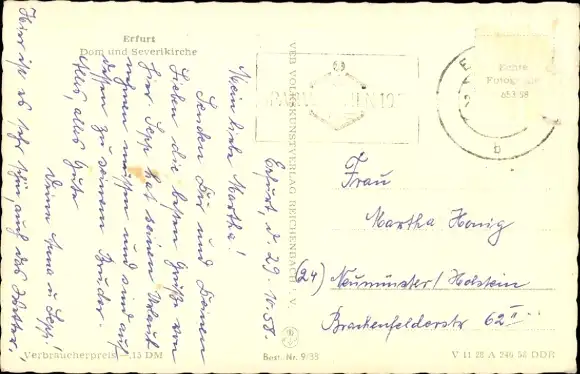 Erfurt
Dom und Severikirche
Erfurt, d. 29.10.58.
Mein liebe Martha!
Senden Dir und Deinen
Lieben die besten Grüße von
hier. Sepp hat seinen Urlaub
nehmen müssen und sind auf
dessen zu seinem Bruder.
Alles, alles Gute
Deine Anna u. Sepp!
Hier ist es sehr schön, auch das Wetter.
Verbraucherpreis -,15 DM
VEB VOLKSKUNSTVERLAG REICHENBACH I. V.
Best. Nr. 9/38
Echte
Fotografie
Frau
Martha Honig
(24) Neumünster/Holstein
Brachenfelderstr 62 II
b
V 11 28 A 249 58 DDR